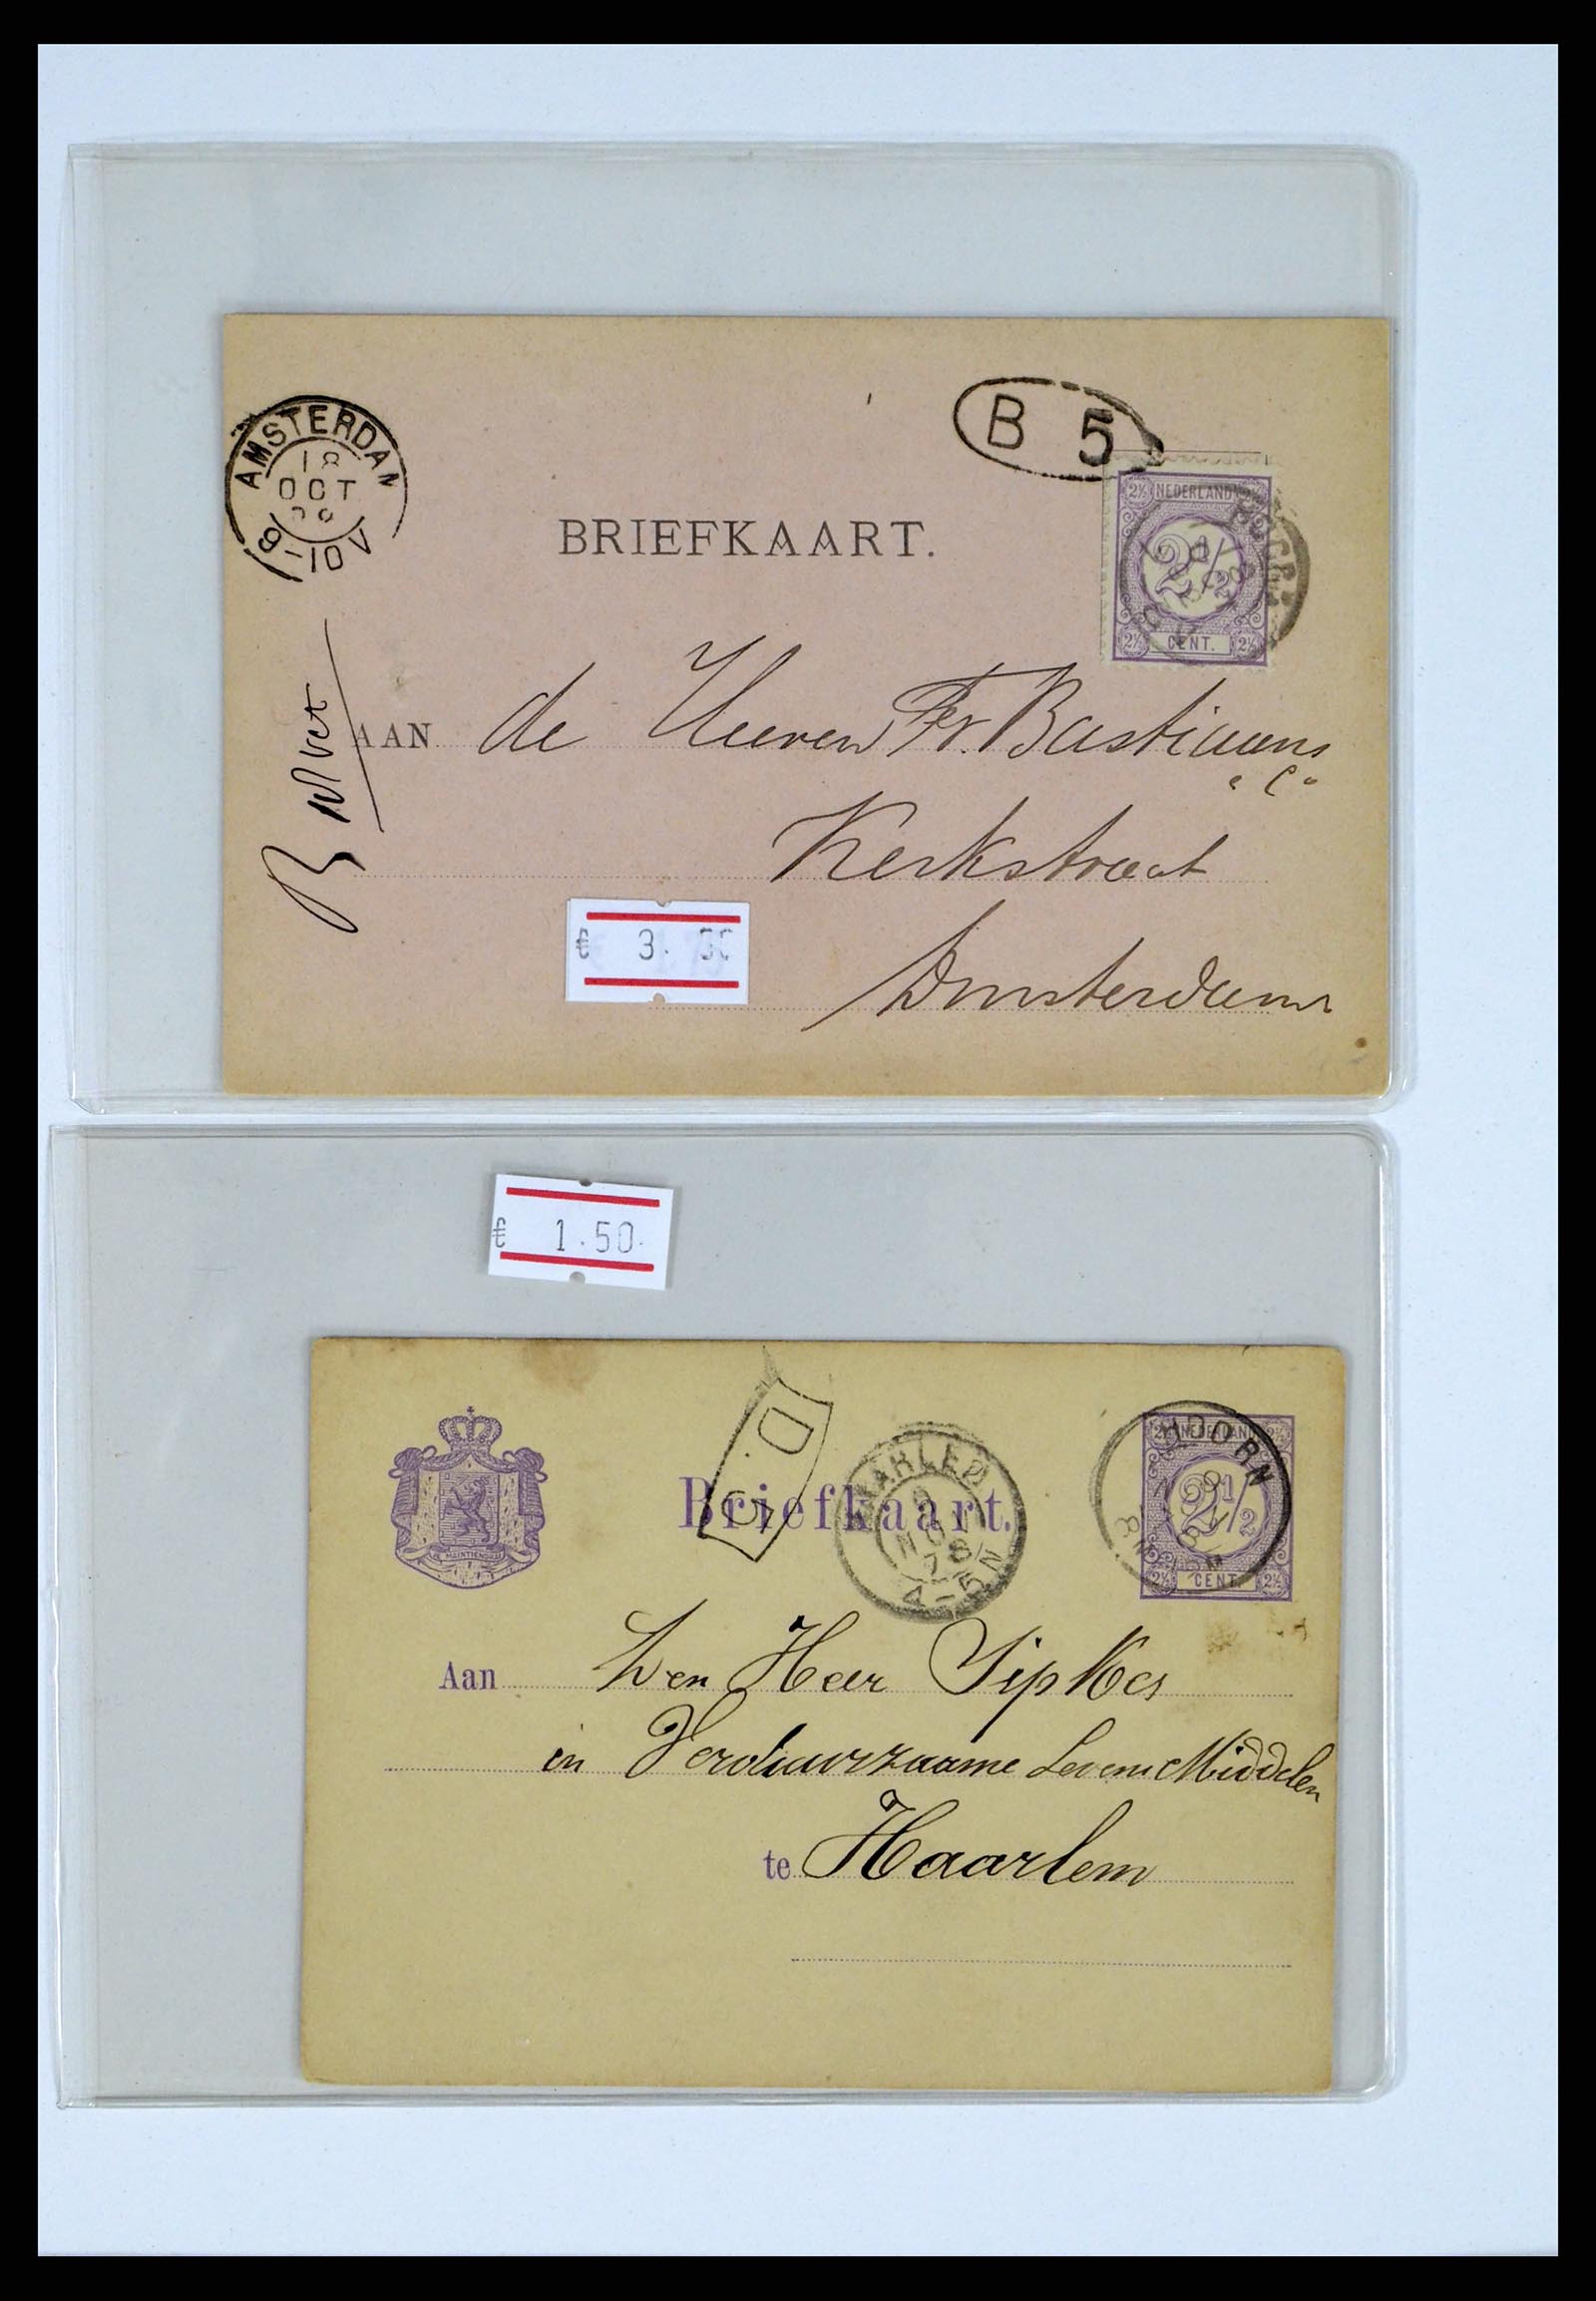 B 5
AMSTERDAM
18
OCT
9-10V
NEDERLAND
2½
CENT.
BRIEFKAART.
AAN de Heeren Fr. Bastiaans
Kerkstraat
Amsterdam
€ 3.
€ 1.50
D.
Briefkaart.
HAARLEM
NOV
78
4-5N
HOORN
NEDERLAND
2½
CENT.
JE MAINTIENDRAI
Aan Den Heer Sipkes
in Verduurzaame LevensMiddelen
te Haarlem